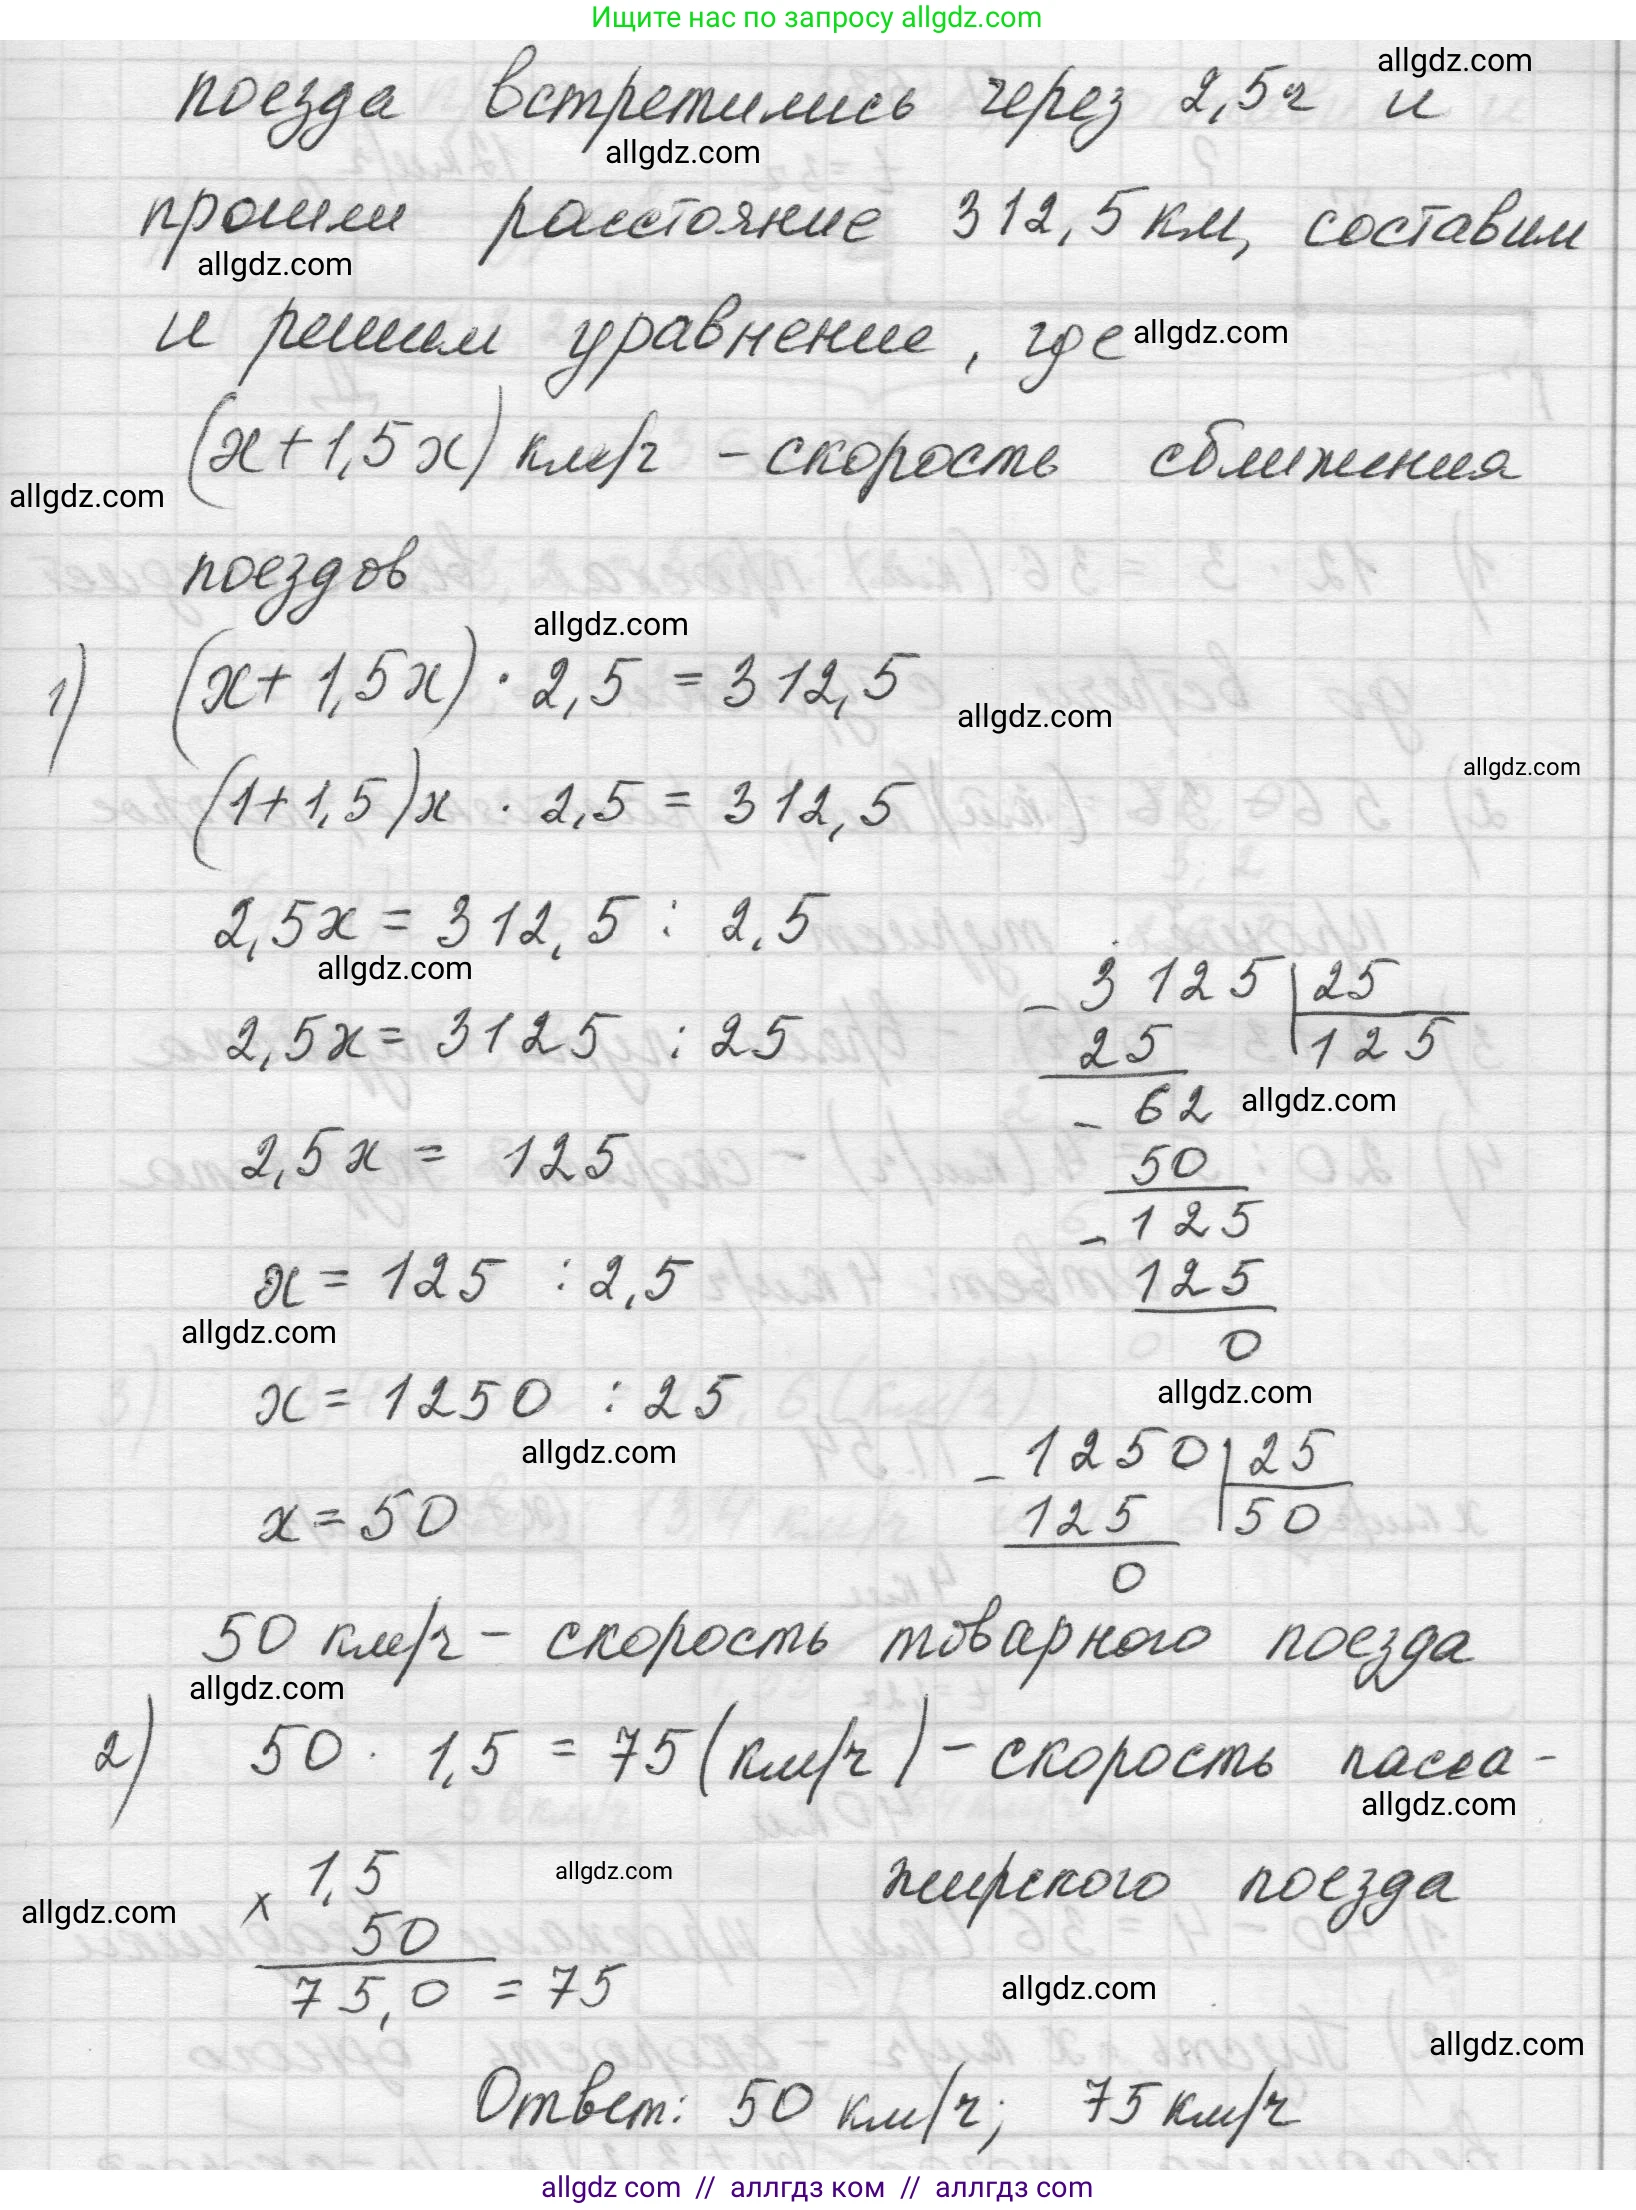 Ищите нас по запросу allgdz.com
allgdz.com
поезда встретились через 2,5ч и
allgdz.com
прошли расстояние 312,5 км, составим
allgdz.com
и решим уравнение, где allgdz.com
(x+1,5x) км/ч - скорость сближения
allgdz.com
поездов
allgdz.com
1) (x+ 1,5x) · 2,5 = 312,5
allgdz.com
allgdz.com
(1+1,5)x · 2,5 = 312,5
2,5x = 312,5 : 2,5
allgdz.com
- 3125 | 25
2,5x = 3125 : 25
25 | 125
- 62 allgdz.com
2,5x = 125
50
- 125
x = 125 : 2,5
125
allgdz.com
0
x = 1250 : 25
allgdz.com
allgdz.com
- 1250 | 25
x = 50
125 | 50
0
50 км/ч - скорость товарного поезда
allgdz.com
2) 50 · 1,5 = 75 (км/ч) - скорость пасса-
allgdz.com
жирского поезда
allgdz.com
allgdz.com
x 1,5
50
75,0 = 75
allgdz.com
allgdz.com
Ответ: 50 км/ч; 75 км/ч
allgdz.com // аллгдз ком // аллгдз.com